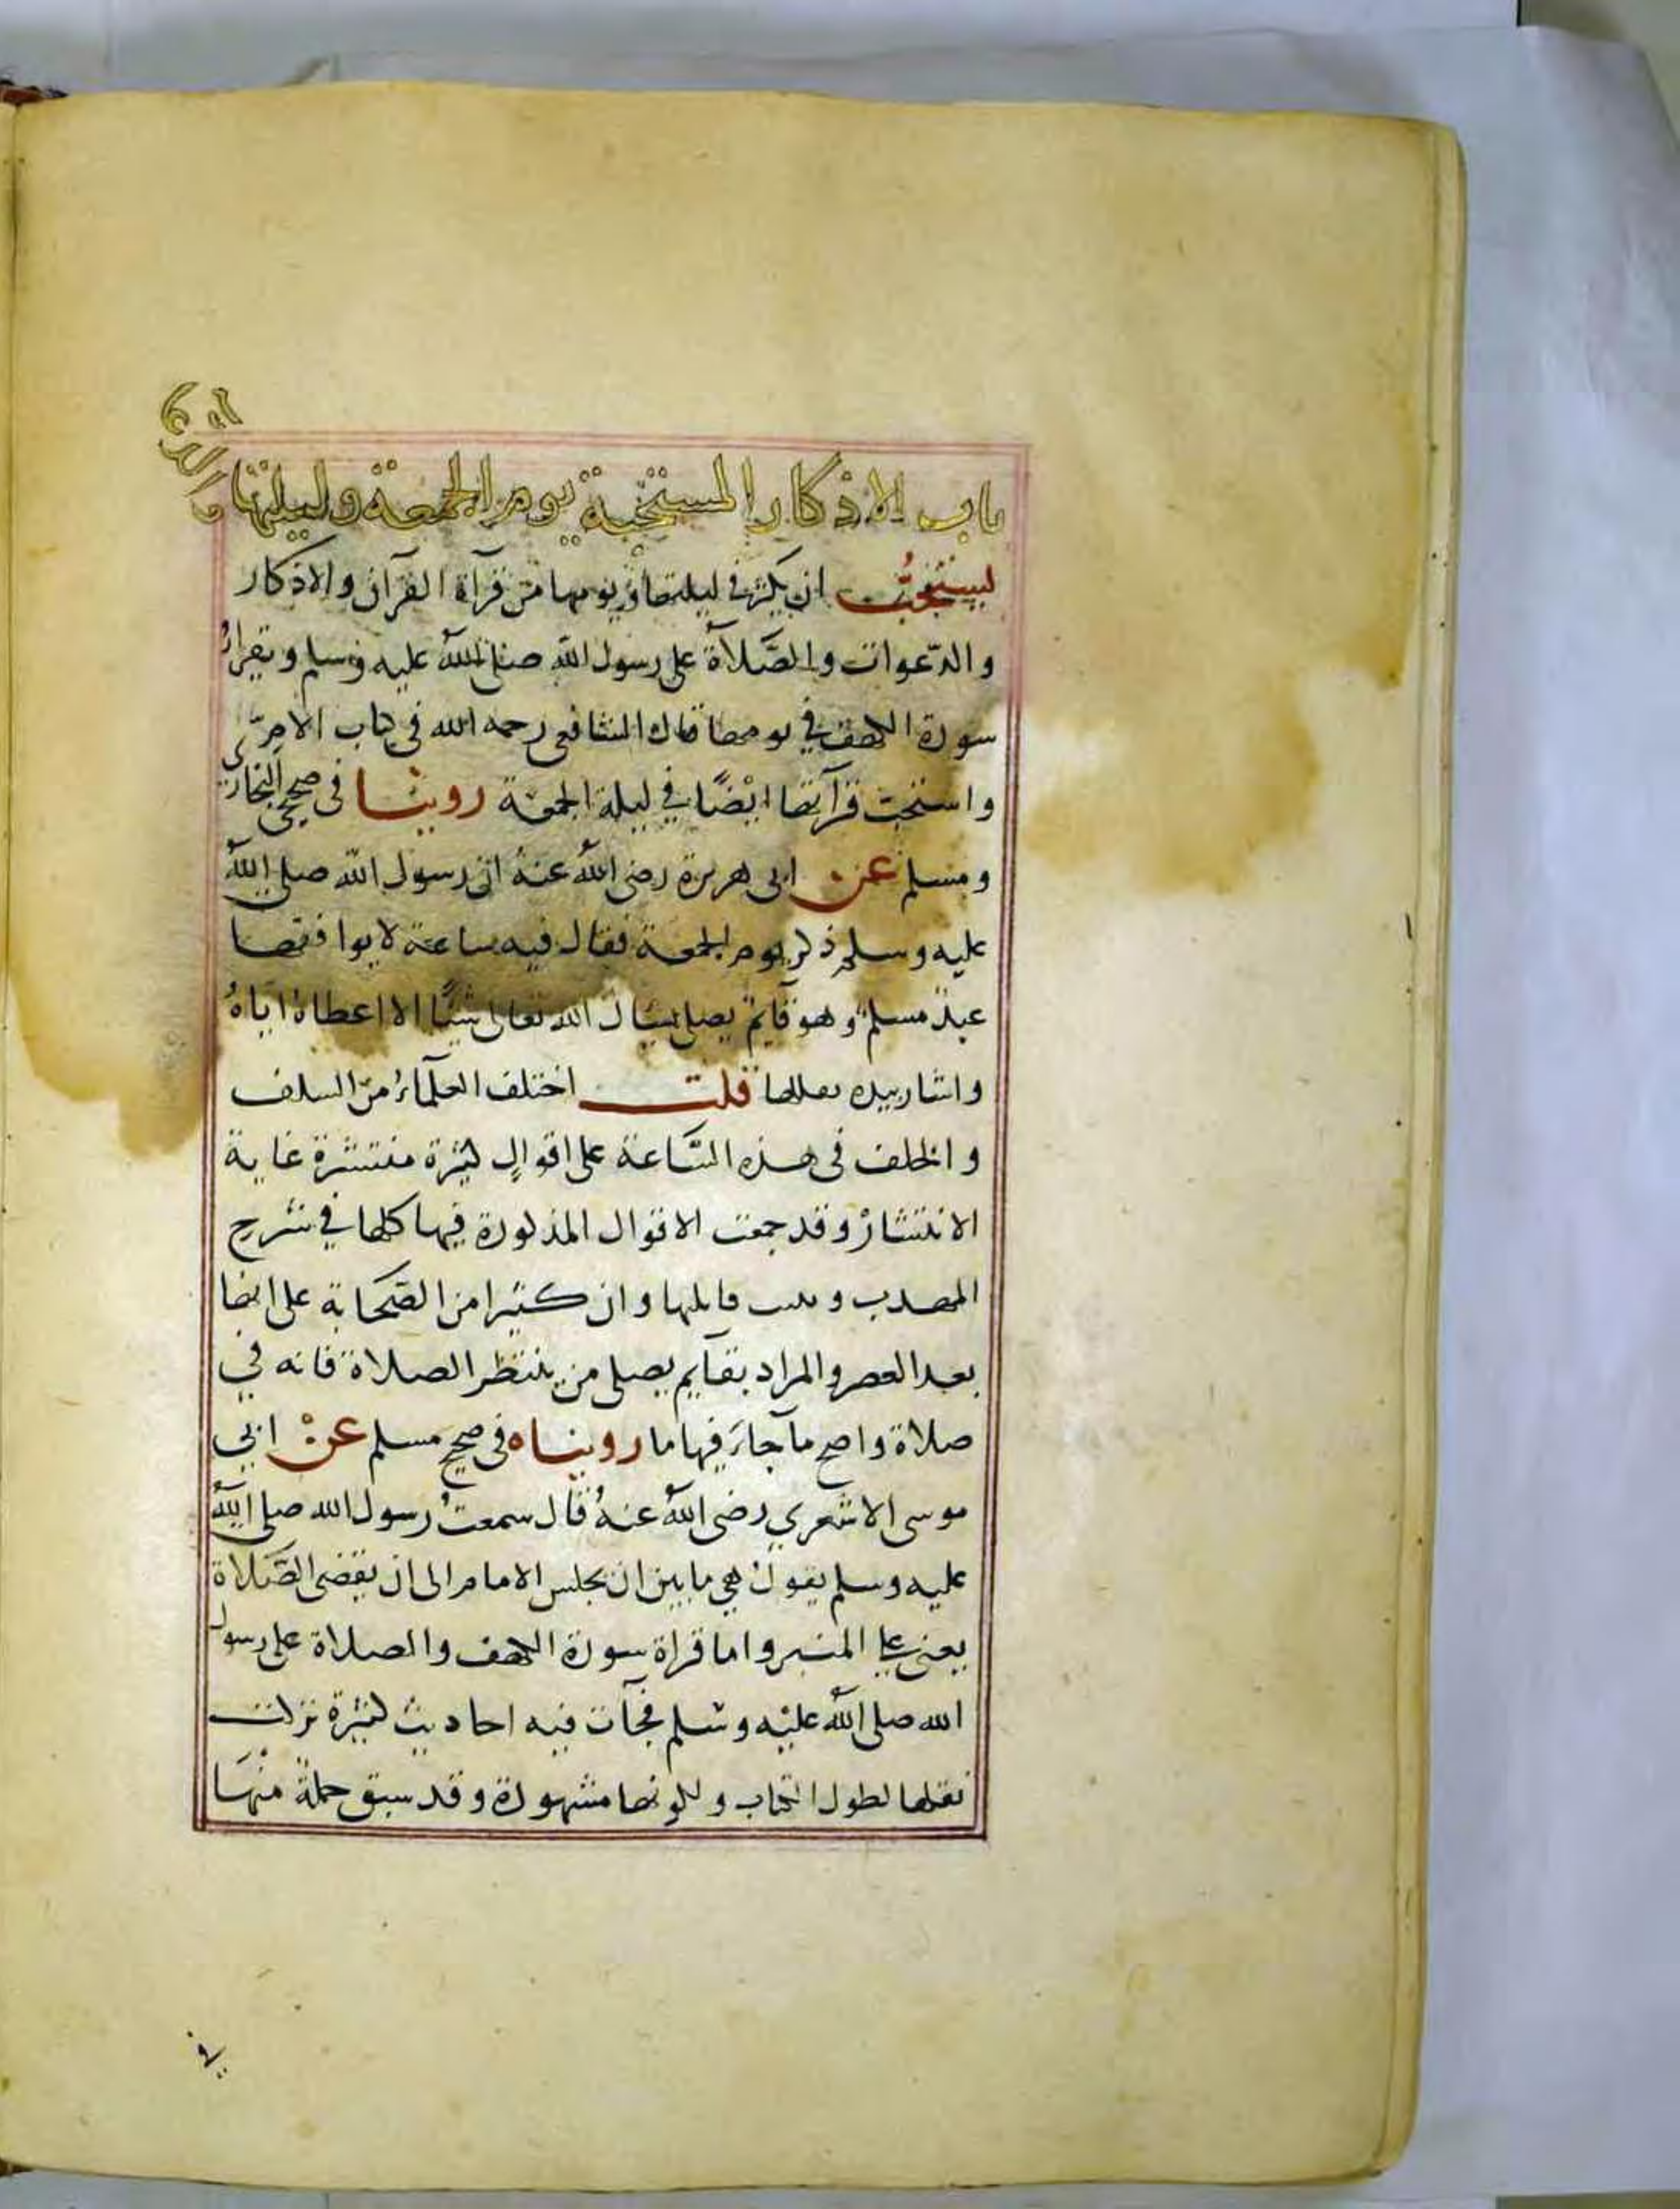 باب الاذكار المستحبة يوم الجمعة وليلتها والدعاء
يستحب ان يكثر في ليلتها ويومها من قرآة القرآن والاذكار
والدعوات والصلاة على رسول الله صلى الله عليه وسلم ويقرأ
سورة الكهف في يومها قال الشافعي رحمه الله في كتاب الام
واستحب قرآتها ايضًا في ليلة الجمعة روينا في صحيحي البخاري
ومسلم عن ابي هريرة رضي الله عنه ان رسول الله صلى الله
عليه وسلم ذكر يوم الجمعة فقال فيه ساعة لا يوافقها
عبد مسلم وهو قآيم يصلي يسال الله تعالى شيئًا الا اعطاه اياهُ
واشار بيده يقللها قلت اختلف العلمآءُ من السلف
والخلف في هذه السَّاعة على اقوالٍ كثيرة منتشرة غاية
الانتشار وقد جمعت الاقوال المذكورة فيها كلها في شرح
المهدب وبينت قايلها وان كثيرا من الصَّحابة على انها
بعد العصر والمراد بقآيم يصلي من ينتظر الصلاة فانه في
صلاة واصح مآ جآء فيها ما رويناه في صحيح مسلم عنْ ابي
موسى الاشعري رضي الله عنهُ قال سمعتُ رسول الله صلى الله
عليه وسلم يقول هي ما بين ان يجلس الامام الى ان يقضي الصَّلاة
يعني على المنبر واما قراة سورة الكهف والصلاة على رسول
الله صلى الله عليْه وسلم فجآت فيه احاديث كثيرة تركت
نقلها لطول الكتاب ولكونها مشهورة وقد سبق جملةٌ منْهَا
في